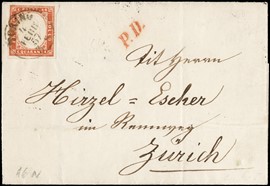 P.D.
Tit Herrn
Hirzel=Escher
im Rennweg
Zürich